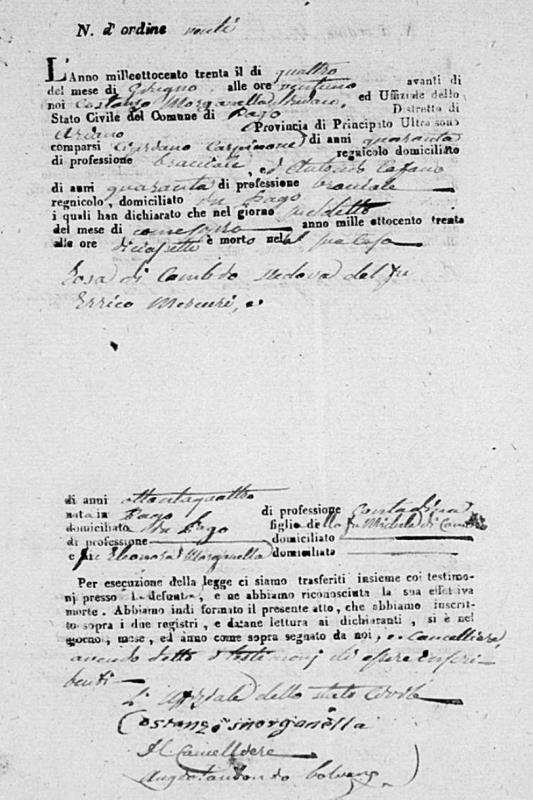 N. d'ordine venti
L'Anno milleottocento trenta il dì quattro
del mese di Giugno alle ore ventuno avanti di
noi Costanzo Morganella Sindaco, ed Uffiziale dello
Stato Civile del Comune di Pago Distretto di
Ariano Provincia di Principato Ultra sono
comparsi Giordano Carpinone di anni quaranta
di professione bracciale regnicolo domiciliato
, ed Antonio
di anni quaranta di professione bracciale
regnicolo, domiciliato in Pago
i quali han dichiarato che nel giorno suddetto
del mese di come sopra anno mille ottocento trenta
alle ore diciasette è morto nella sua casa
Rosa di vedova del fu
Errico Mercuri, e
di anni ottantaquattro
nata in Pago di professione contadina
domiciliato in Pago figlio della fu Michele di
di professione domiciliato
e fu Eleonora Morganella domiciliato
Per esecuzione della legge ci siamo trasferiti insieme coi testimo-
nj presso la defunta, e ne abbiamo riconosciuta la sua effettiva
morte. Abbiamo indi formato il presente atto, che abbiamo inscrit-
to sopra i due registri, e datane lettura ai dichiaranti, si è nel
giorno, mese, ed anno come sopra segnato da noi, e Cancelliere,
avendo detto i testimonj di essere inscri-
benti
L' Uffiziale dello stato Civile
Costanzo Morganella
Il Cancelliere